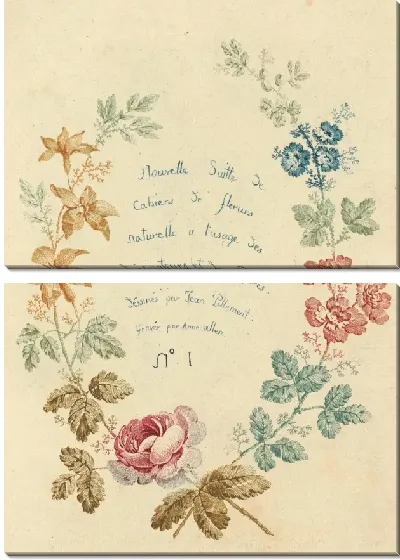 Nouvelle Suite de
Cahiers de fleurs
naturelle a l'usage des
Désinés par Jean Pillement
Gravés par Anne Allen
N° 1